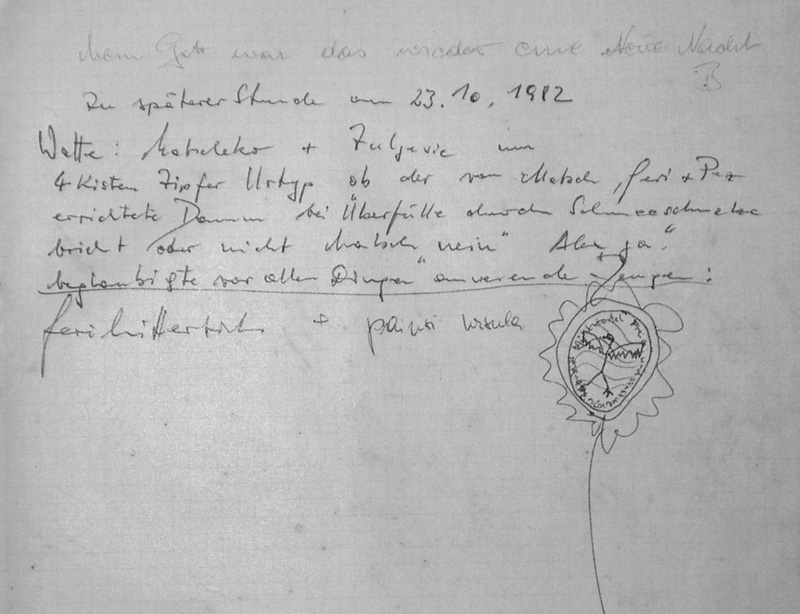 mein Gott war das wieder eine Neue Nacht
B
Zu späterer Stunde am 23.10.1982
Wette: Matscheko + Zuljevic um
4 Kisten Zipfer Urtyp ob der von Matsch, feri + Pez
errichtete Damm bei Überfülle durch Schneeschmelze
bricht oder nicht Matsch nein" Alex ja"
beglaubigte vor allen Dingen" anwesende Zeugen:
feri + painsi ursula